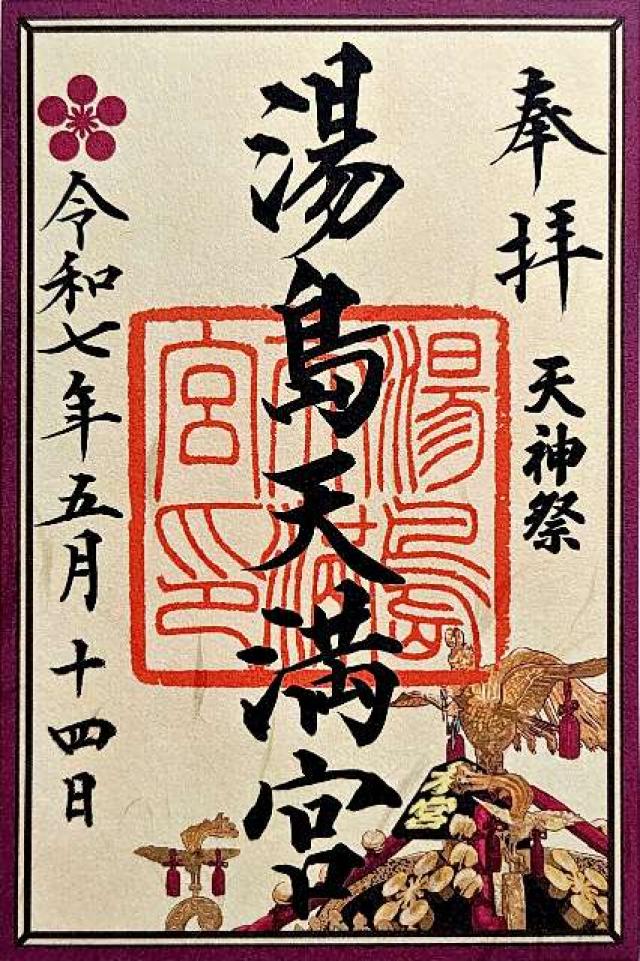 奉拝
天神祭
湯島天満宮
湯島天満宮印
令和七年五月十四日
本宮